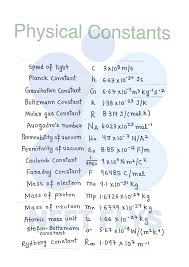 Physical Constants
Speed of light C 3×10⁸ m/s
Planck Constant h 6.63×10⁻³⁴ Js
Gravitation Constant G 6.67×10⁻¹¹ m³ kg⁻¹ s⁻²
Boltzmann Constant K 1.38×10⁻²³ J/K
Molar gas Constant R 8.314 J/(mol K)
Avogadro's number NA 6.023×10²³ mol⁻¹
Permeability of vacuum μ₀ 4π×10⁻⁷ N/A²
Permitivity of vacuum ε₀ 8.85×10⁻¹² F/m
Coulomb Constant 1/4πε₀ 9×10⁹ N m²/c²
Faraday Constant F 96485 C/mol
Mass of electron me 9.1×10⁻³¹ kg
Mass of proton mp 1.6726×10⁻²⁷ kg
Mass of neutron mn 1.6749×10⁻²⁷ kg
Atomic mass unit u 1.66×10⁻²⁷ kg
Stefan-Boltzmann constant σ 5.67×10⁻⁸ W/(m² K⁴)
Rydberg Constant R∞ 1.097×10⁷ m⁻¹